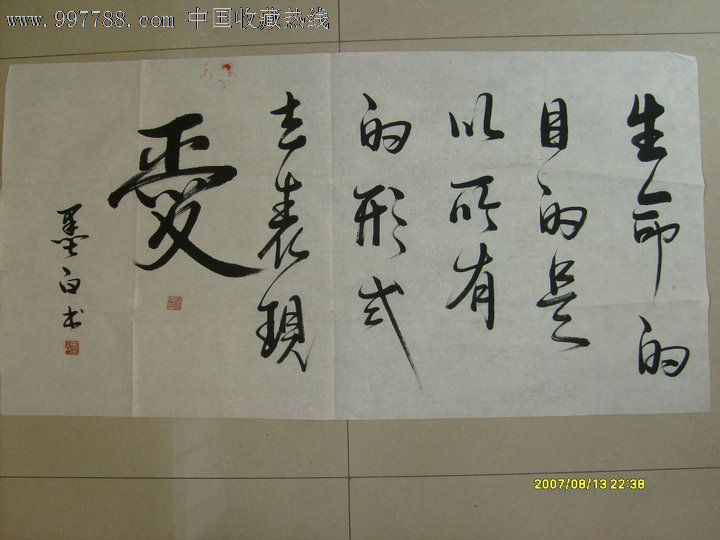 www.997788.com 中国收藏热线
生命的
目的是
以所有
的形式
去表現
愛
墨白书
2007/08/13 22:38